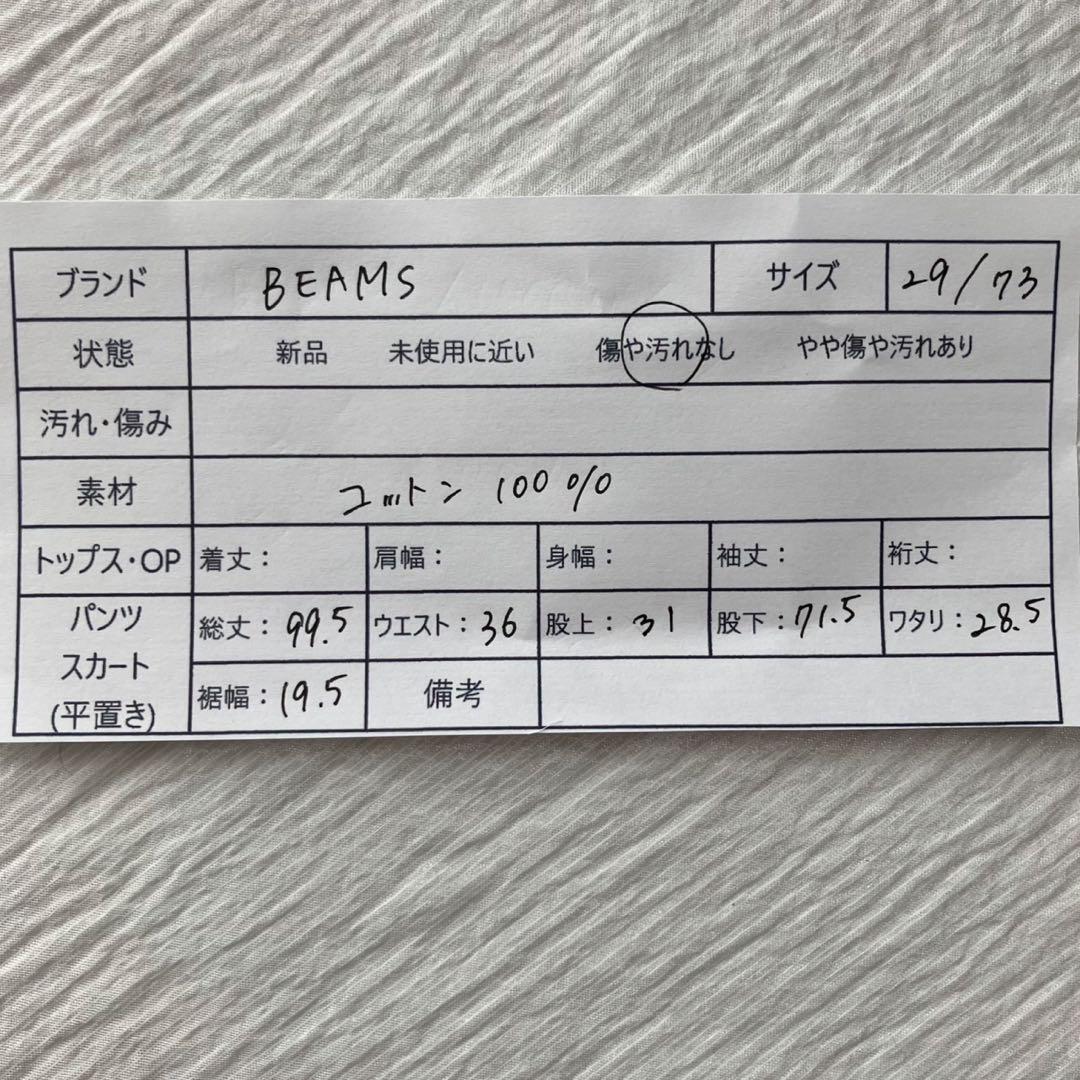 ブランド BEAMS サイズ 29/73
状態 新品 未使用に近い 傷や汚れなし やや傷や汚れあり
汚れ・傷み
素材 コットン 100%
トップス・OP 着丈： 肩幅： 身幅： 袖丈： 裄丈：
パンツ
スカート
(平置き)
総丈：99.5 ウエスト：36 股上：31 股下：71.5 ワタリ：28.5
裾幅：19.5 備考